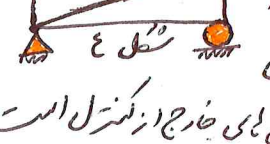 شکل ٤
های خارج از کنترل است